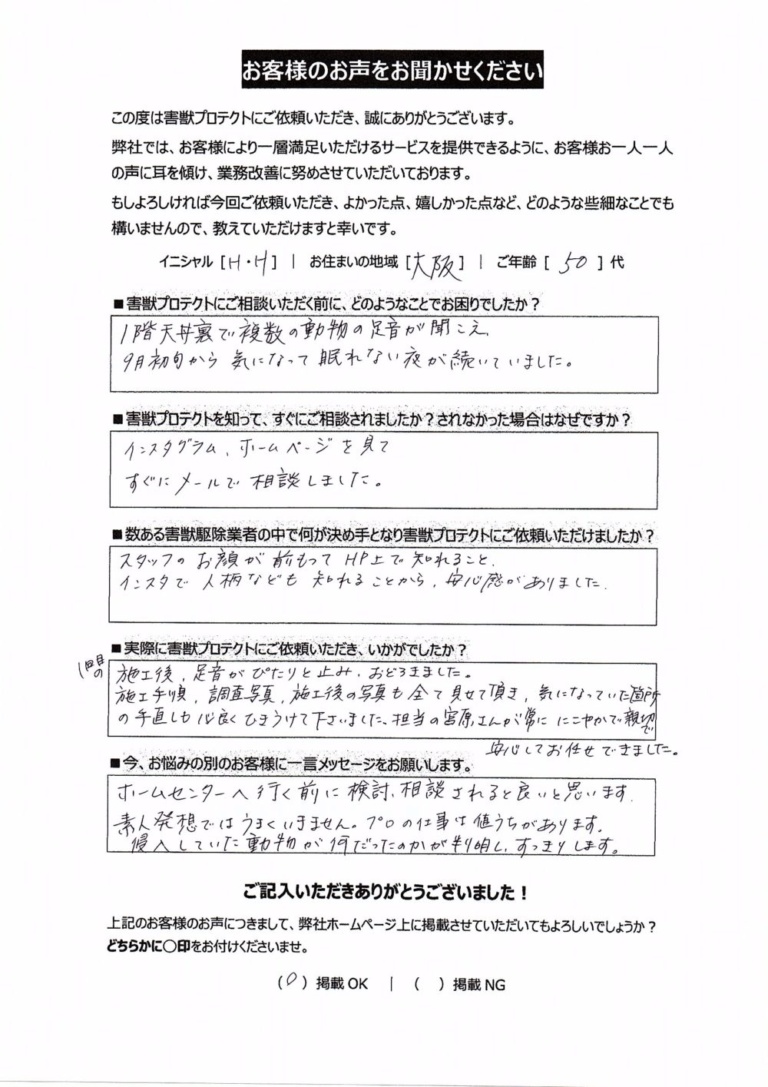 お客様のお声をお聞かせください
この度は害獣プロテクトにご依頼いただき、誠にありがとうございます。
弊社では、お客様により一層満足いただけるサービスを提供できるように、お客様お一人一人
の声に耳を傾け、業務改善に努めさせていただいております。
もしよろしければ今回ご依頼いただき、よかった点、嬉しかった点など、どのような些細なことでも
構いませんので、教えていただけますと幸いです。
イニシャル [H・H] | お住まいの地域 [大阪] | ご年齢 [ 50 ] 代
■害獣プロテクトにご相談いただく前に、どのようなことでお困りでしたか？
1階天井裏で複数の動物の足音が聞こえ、
9月初旬から 気になって眠れない夜が続いていました。
■害獣プロテクトを知って、すぐにご相談されましたか？されなかった場合はなぜですか？
インスタグラム、ホームページを見て
すぐにメールで相談しました。
■数ある害獣駆除業者の中で何が決め手となり害獣プロテクトにご依頼いただけましたか？
スタッフのお顔が前もってHP上で知れること、
インスタで人柄なども知れることから、安心感がありました。
■実際に害獣プロテクトにご依頼いただき、いかがでしたか？
1回目の
施工後、足音がぴたりと止み、おどろきました。
施工手順、調査写真、施工後の写真も全て見せて頂き、気になっていた箇所
の手直しも心良くひきうけて下さいました、担当の宮原さんが常ににこやかで親切で
安心してお任せできました。
■今、お悩みの別のお客様に一言メッセージをお願いします。
ホームセンターへ行く前に検討、相談されると良いと思います
素人発想ではうまくいきません。プロの仕事は値うちがあります。
侵入していた動物が何だったのかが判明し、すっきりします。
ご記入いただきありがとうございました！
上記のお客様のお声につきまして、弊社ホームページ上に掲載させていただいてもよろしいでしょうか？
どちらかに○印をお付けくださいませ。
(○) 掲載 OK | ( ) 掲載 NG